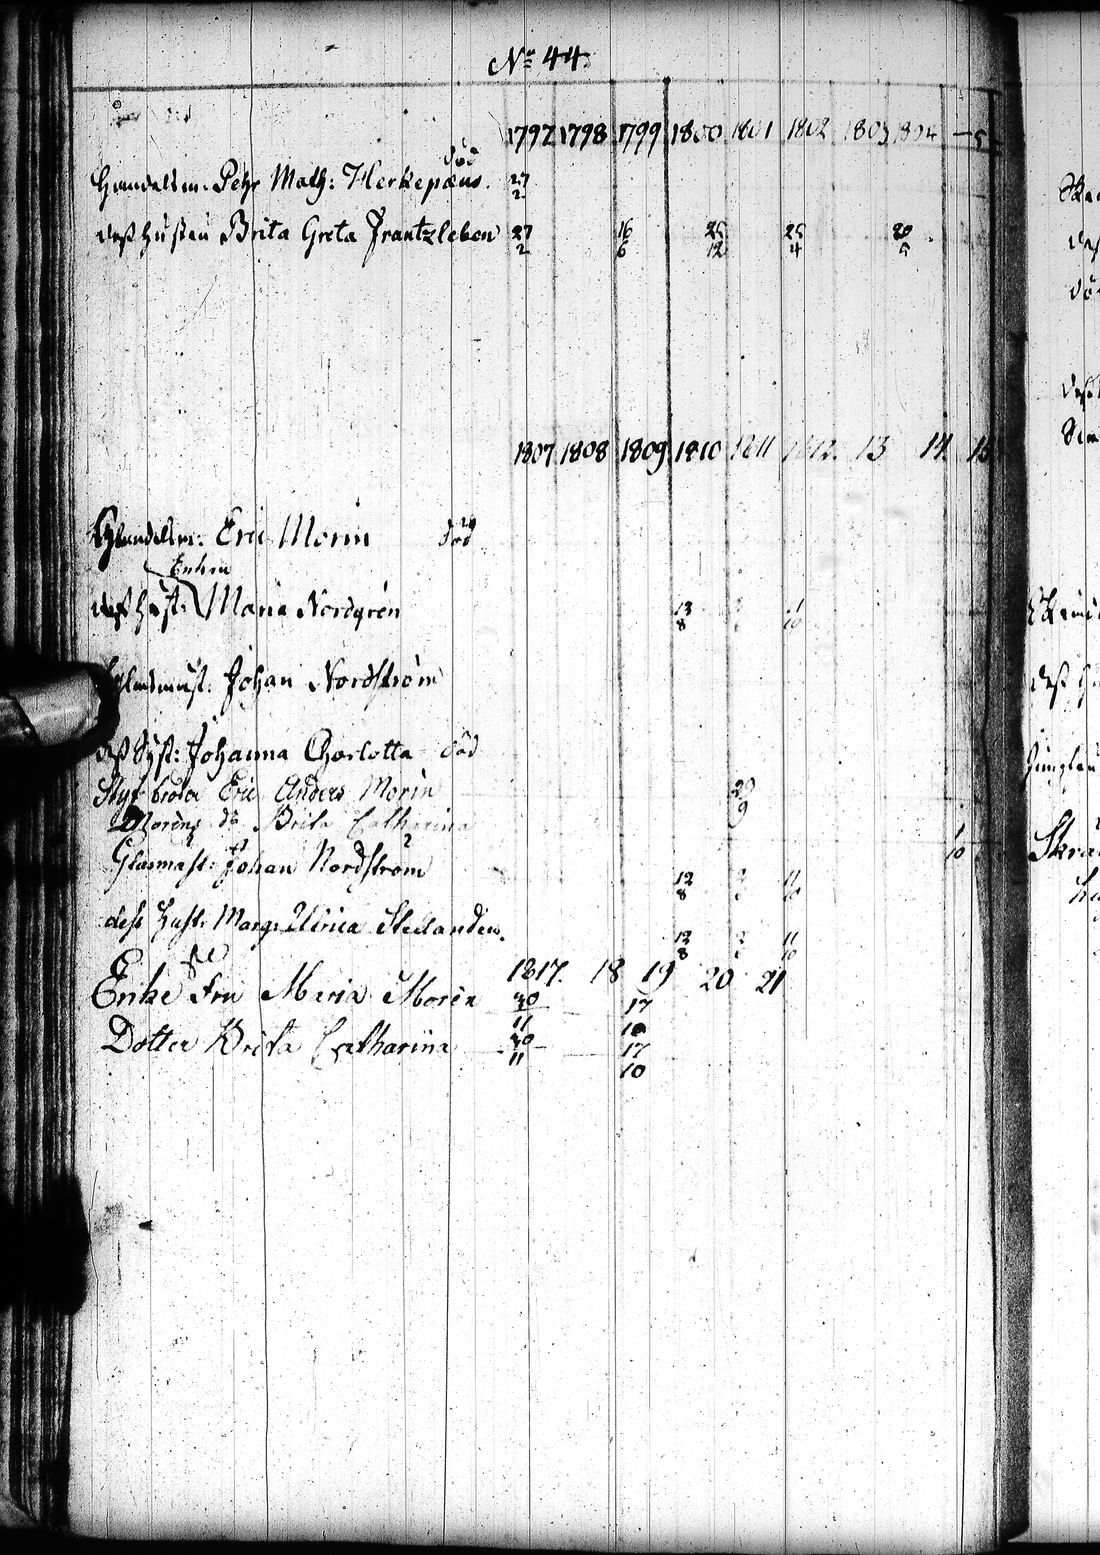 No 44.
1797 1798 1799 1800 1801 1802 1803 1804 5
död
Handelsm: Pehr Math: Herkepæus. 27/2
dess hustru Brita Greta Frantzleben 27/2 16/6 25/12 25/4 20/5
1807 1808 1809 1810 1811 1812. 13 14. 15
Handelsm: Eric Morin död
Enkan
dess Hust: Maria Nordgrén 13/8
Glasmäst: Johan Nordström
dess Syst: Johanna Charlotta död
Styf broder Eric Anders Morin 29/9
Morens do Brita Catharina 1/10
Glasmäst: Johan Nordström 12/8 11/10
dess Hust: Marg: Ulrica Stellanders. 12/8 11/10
1817. 18 19 20 21
Enke Fru Maria Morén 30/11 17/10
Dotter Brita Catharina 30/11 17/10
Skra